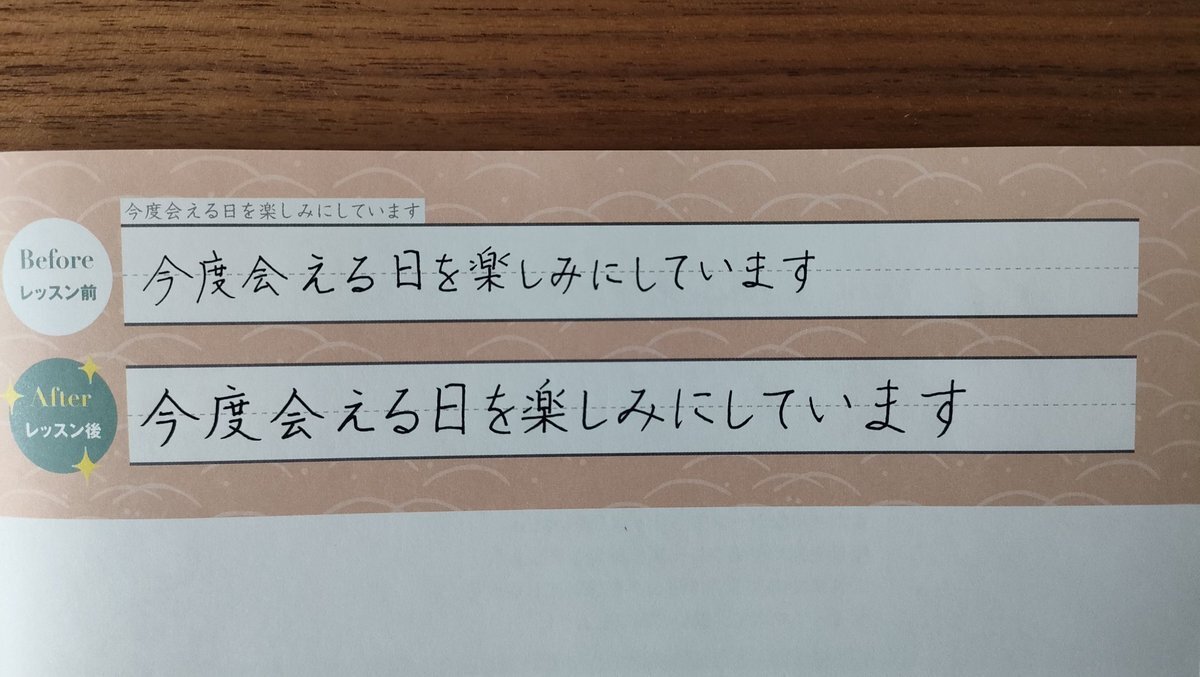 今度会える日を楽しみにしています
Before
レッスン前
今度会える日を楽しみにしています
After
レッスン後
今度会える日を楽しみにしています